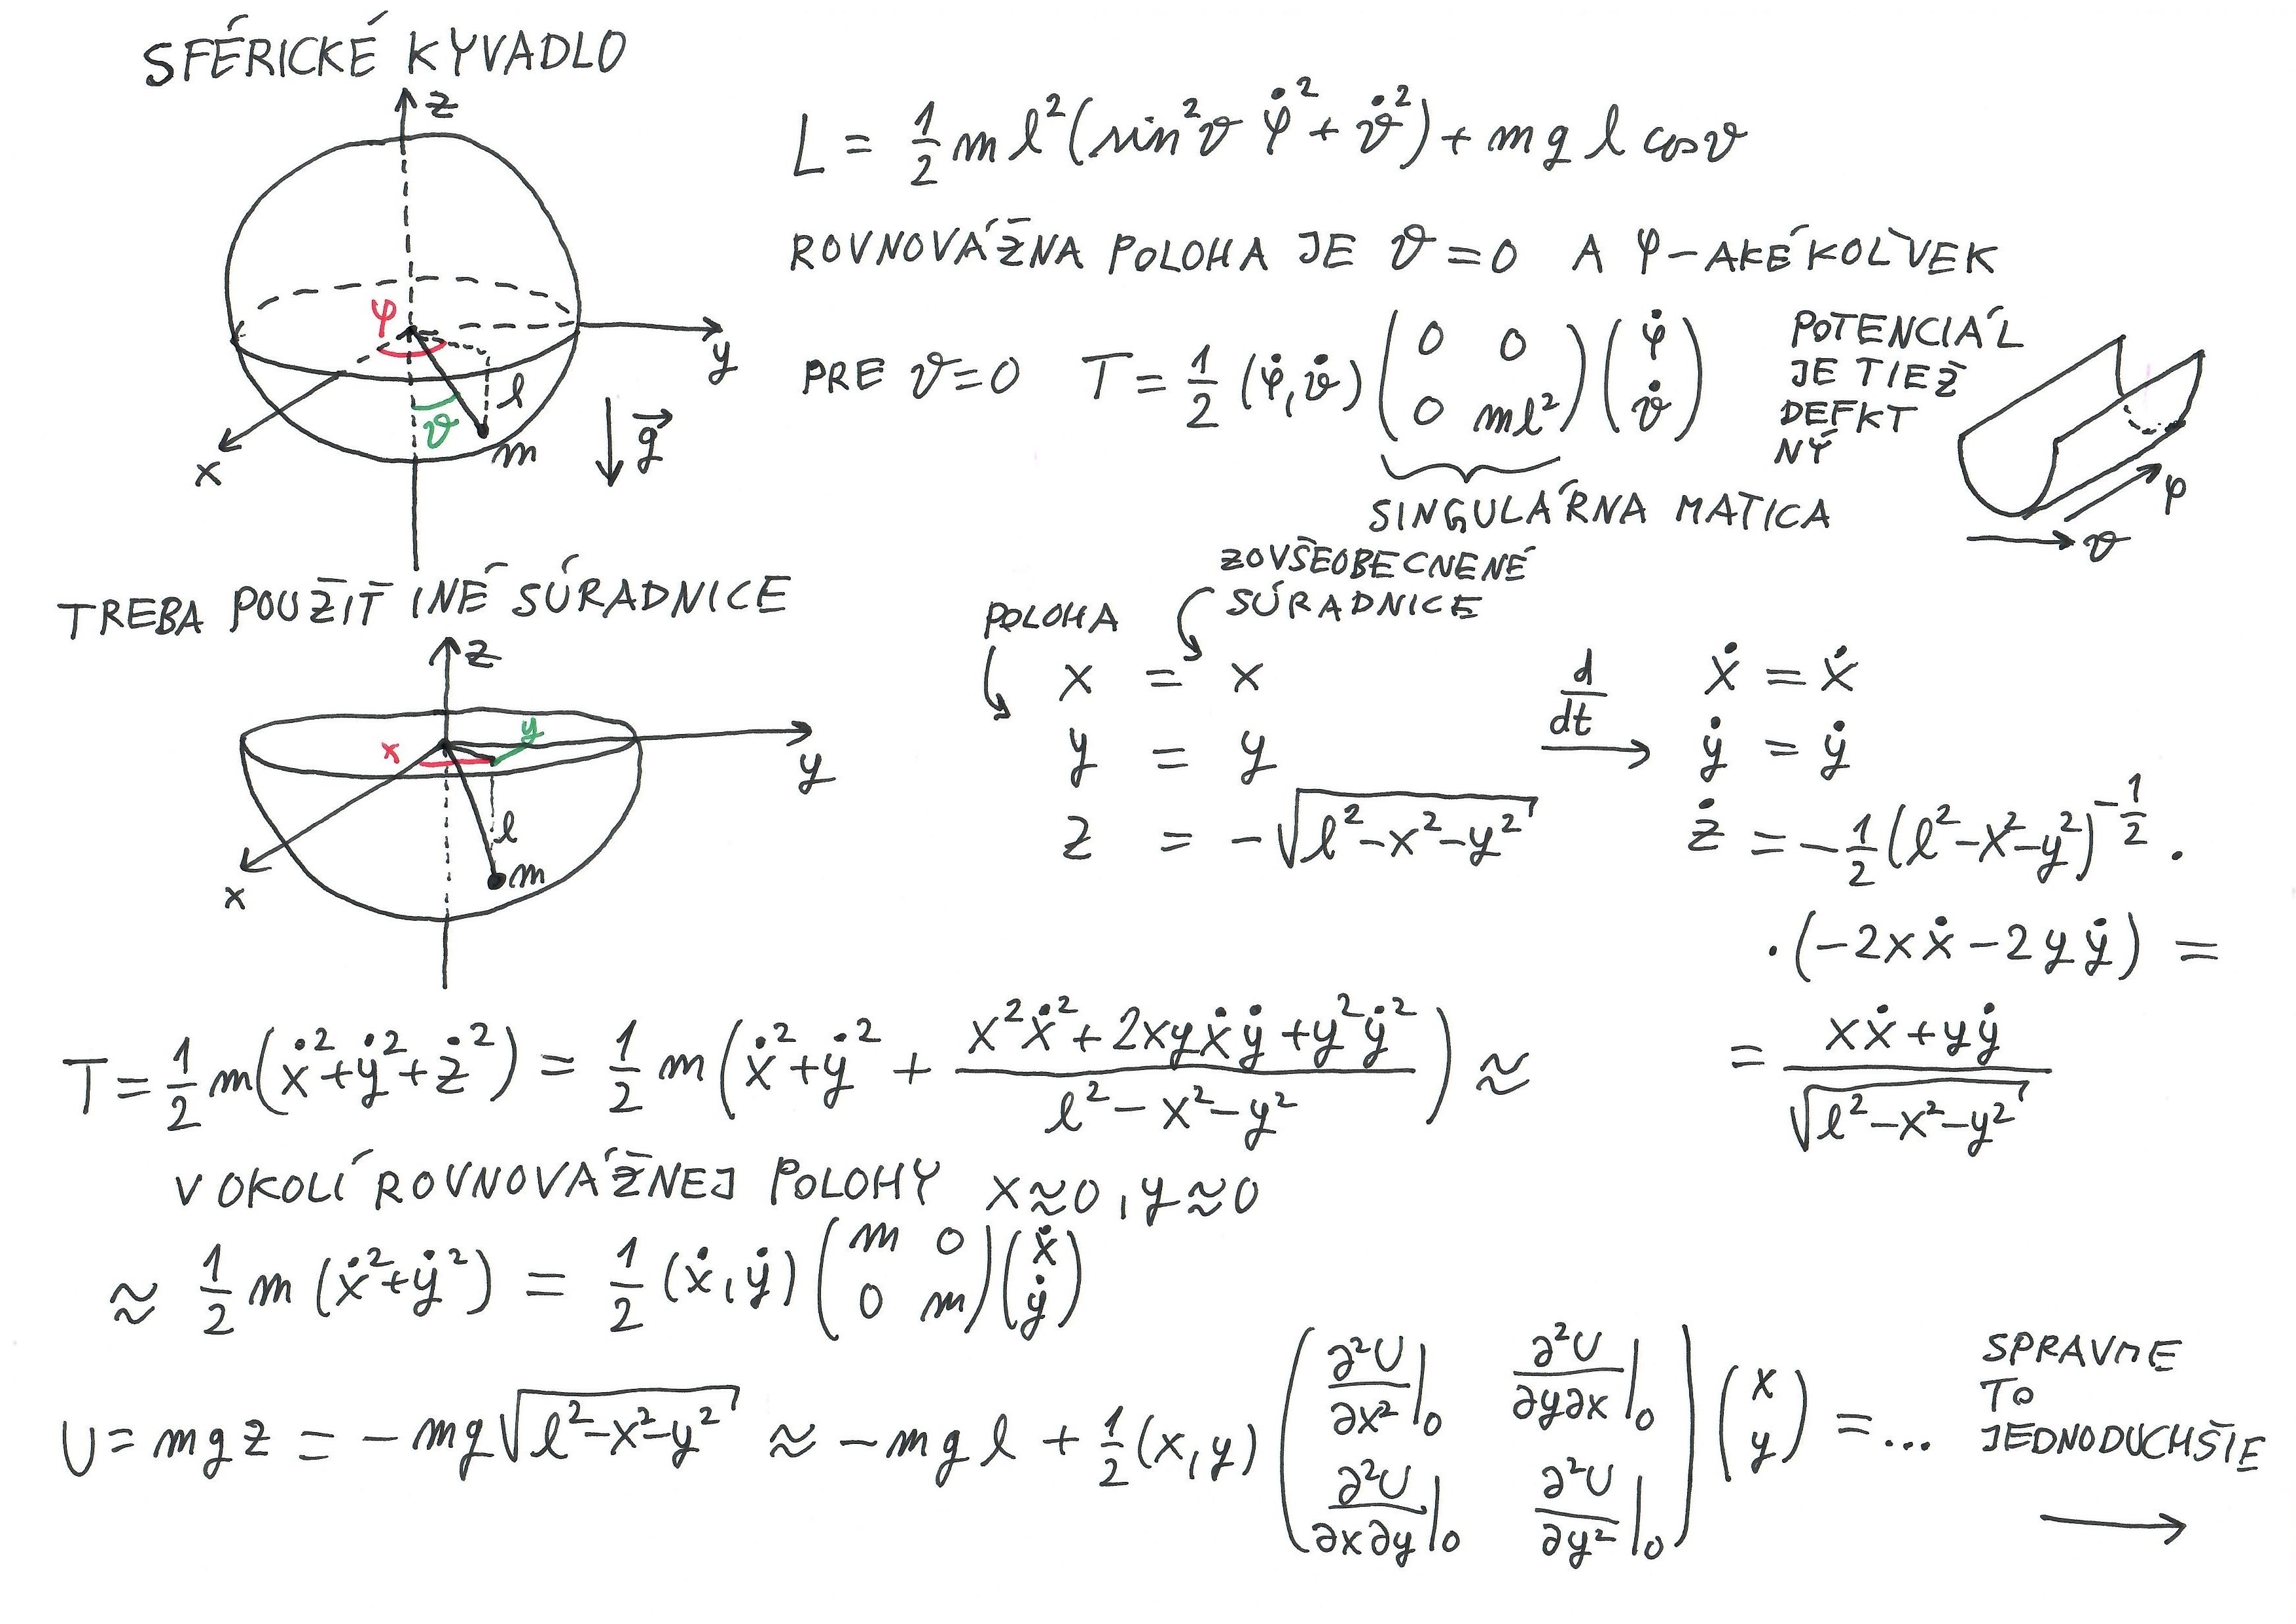 SFÉRICKÉ KYVADLO
z
φ
y
l
ϑ
m
x
g⃗
L = 1/2 m l² (sin²ϑ φ̇² + ϑ̇²) + m g l cosϑ
ROVNOVÁŽNA POLOHA JE ϑ = 0 A φ - AKÉKOĽVEK
PRE ϑ = 0 T = 1/2 (φ̇, ϑ̇) (0 0 / 0 ml²) (φ̇ / ϑ̇)
SINGULÁRNA MATICA
POTENCIÁL
JE TIEŽ
DEFKT
NÝ
φ
ϑ
TREBA POUŽIŤ INÉ SÚRADNICE
z
y
x
y
l
m
x
POLOHA
ZOVŠEOBECNENÉ
SÚRADNICE
x = x
y = y
z = -√(l²-x²-y²)
d/dt
ẋ = ẋ
ẏ = ẏ
ż = -1/2 (l²-x²-y²)^(-1/2) .
. (-2xẋ - 2yẏ) =
= (xẋ + yẏ) / √(l²-x²-y²)
T = 1/2 m(ẋ²+ẏ²+ż²) = 1/2 m (ẋ²+ẏ² + (x²ẋ² + 2xyẋẏ + y²ẏ²) / (l² - x² - y²)) ≈
V OKOLÍ ROVNOVÁŽNEJ POLOHY x≈0, y≈0
≈ 1/2 m (ẋ²+ẏ²) = 1/2 (ẋ, ẏ) (m 0 / 0 m) (ẋ / ẏ)
U = mgz = -mg√(l²-x²-y²) ≈ -mgl + 1/2 (x, y) (∂²U/∂x²|₀ ∂²U/∂y∂x|₀ / ∂²U/∂x∂y|₀ ∂²U/∂y²|₀) (x / y) = ...
SPRAVME
TO
JEDNODUCHŠIE